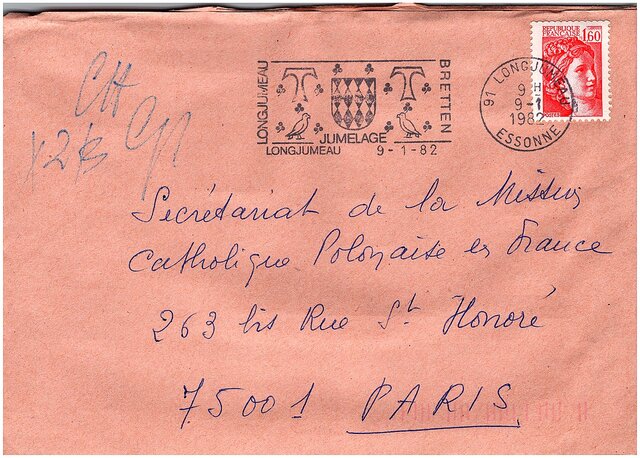 REPUBLIQUE
FRANCAISE
1,60
LONGJUMEAU
BRETTEN
JUMELAGE
LONGJUMEAU 9-1-82
91 LONGJUMEAU
9 H
9-1
1982
ESSONNE
CH
Secrétariat de la Mission
Catholique Polonaise en France
263 bis Rue St Honoré
75001 PARIS